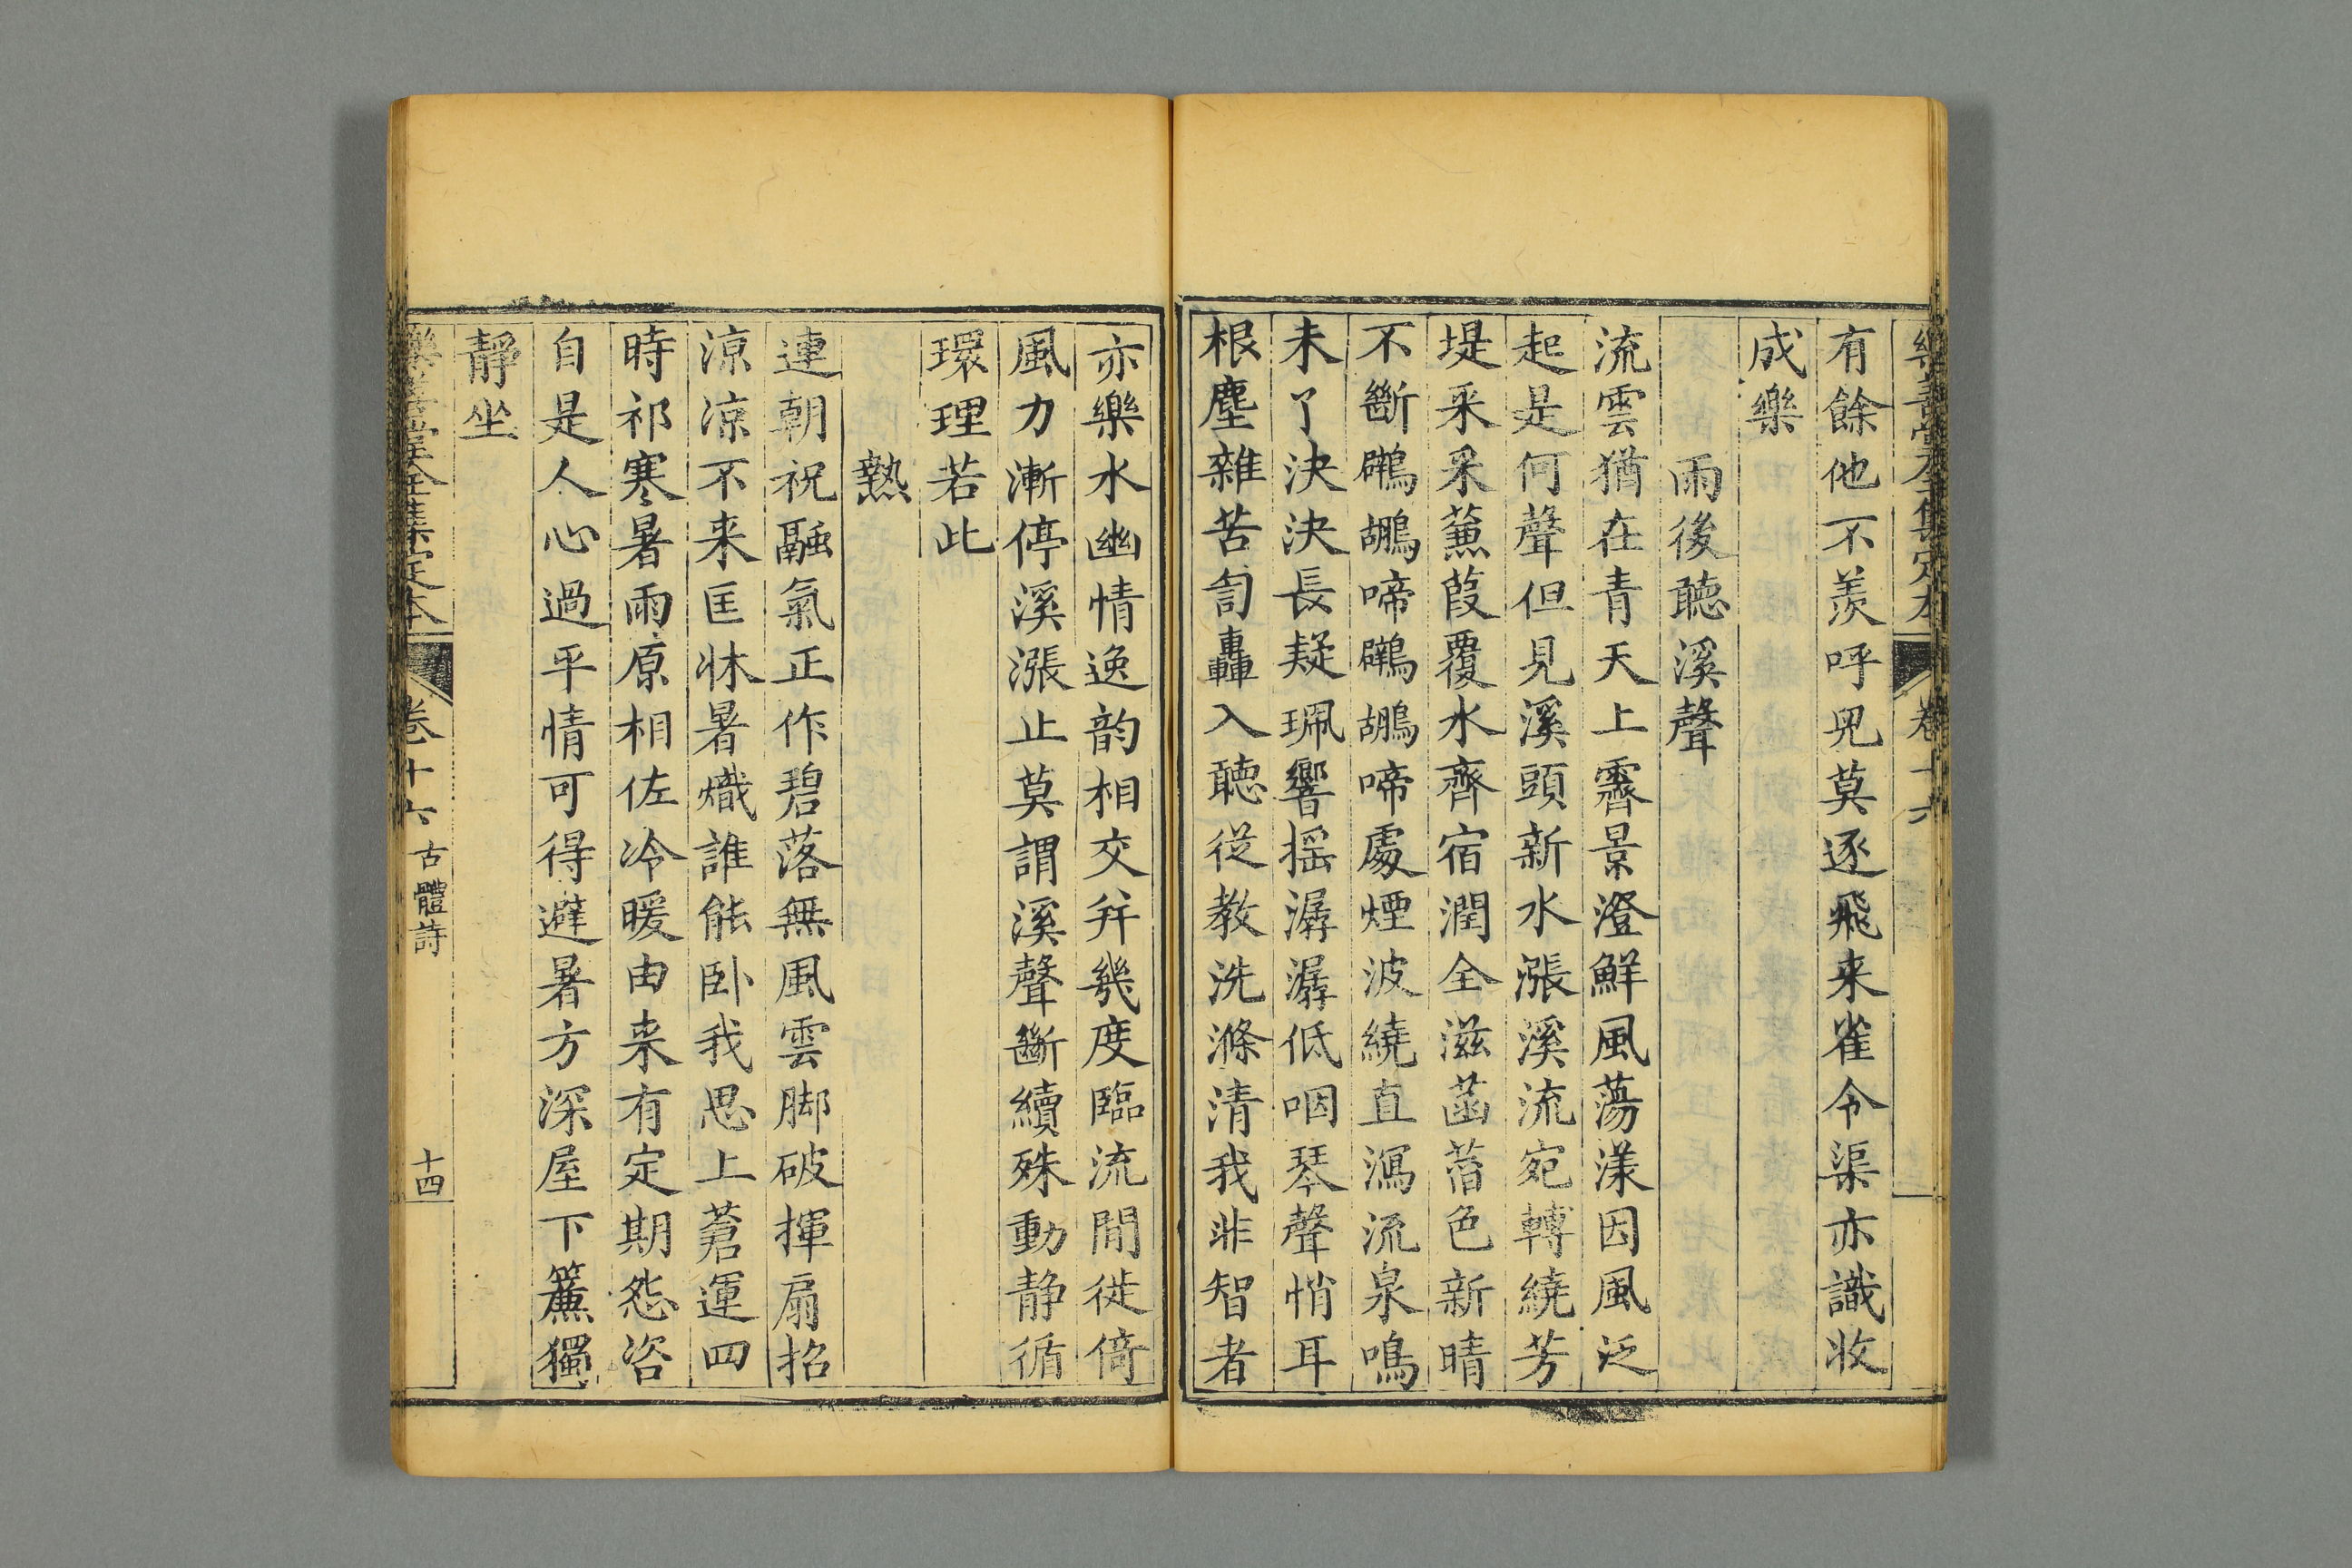 樂善堂全集定本 卷十六
有餘他不羨呼兒莫逐飛来雀令渠亦識收
成樂
雨後聽溪聲
流雲猶在青天上霽景澄鮮風蕩漾因風泛
起是何聲但見溪頭新水漲溪流宛轉繞芳
堤采采蒹葭覆水齊宿潤全滋菡萏色新晴
不斷鸊鶘啼鸊鶘啼處煙波繞直瀉流泉鳴
未了決決長疑珮響摇潺潺低咽琴聲悄耳
根塵雜苦訇轟入聽從教洗滌清我非智者
亦樂水幽情逸韵相交并幾度臨流閒徙倚
風力漸停溪漲止莫謂溪聲斷續殊動静循
環理若此
熱
連朝祝融氣正作碧落無風雲脚破揮扇招
涼涼不来匡牀暑熾誰能卧我思上蒼運四
時祁寒暑雨原相佐冷暖由来有定期怨咨
自是人心過平情可得避暑方深屋下簾獨
靜坐
樂善堂全集定本 卷十六 古體詩 十四